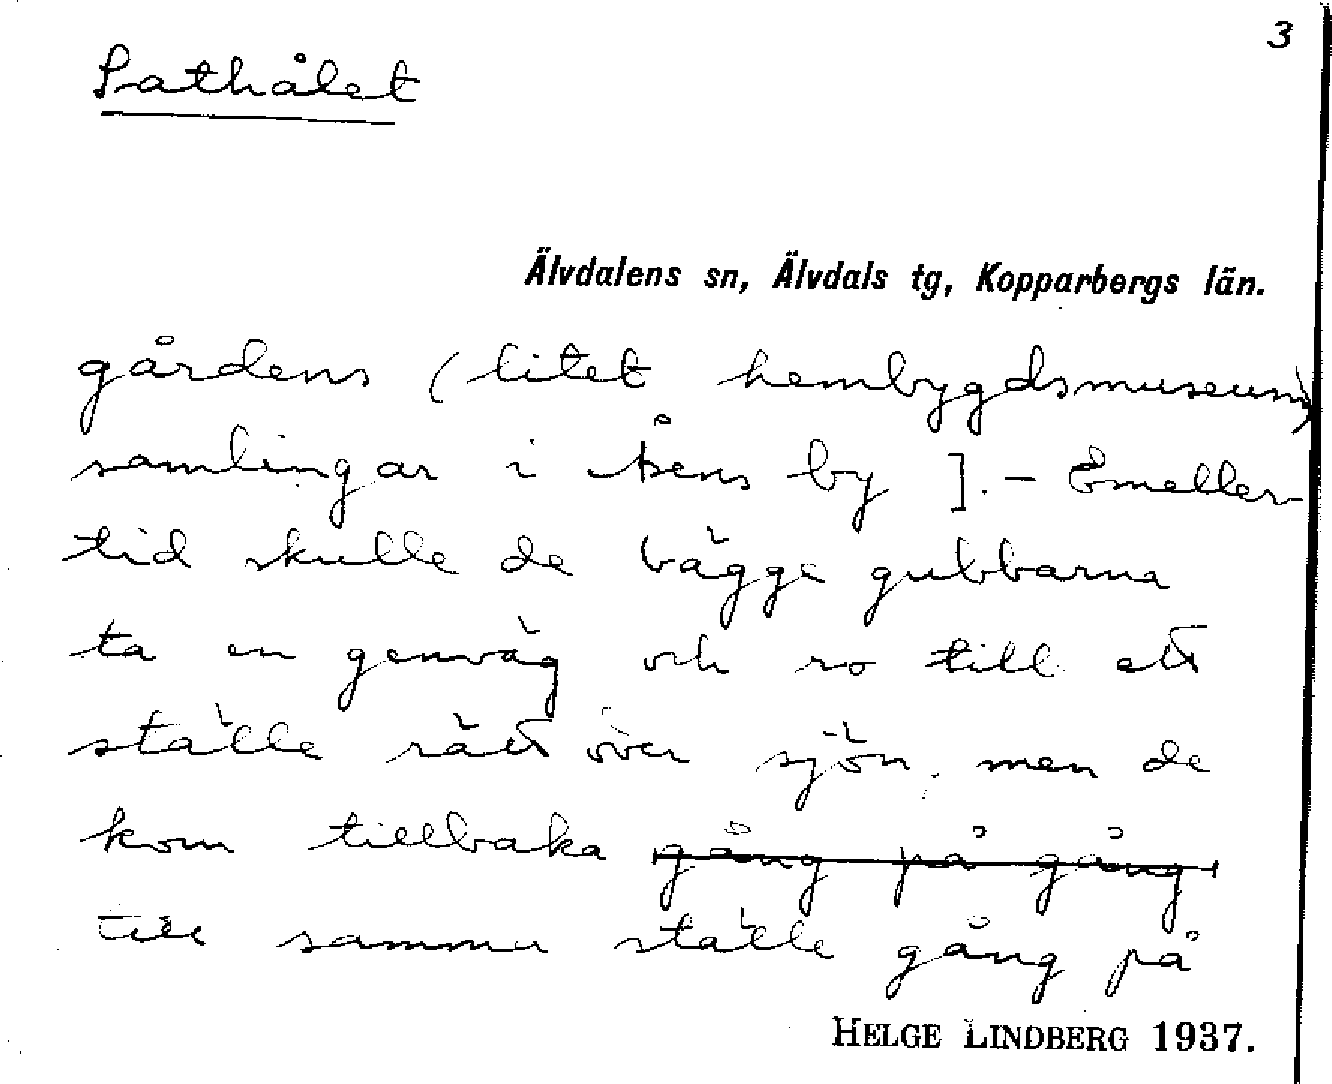 3
Pathålet
Älvdalens sn, Älvdals tg, Kopparbergs län.
gårdens (litet hembygdsmuseum)
samlingar i Åsens by ]. – Emeller-
tid skulle de bägge gubbarna
ta en genväg och ro till ett
ställe rätt över sjön, men de
kom tillbaka gång på gång
till samma ställe gång på
HELGE LINDBERG 1937.